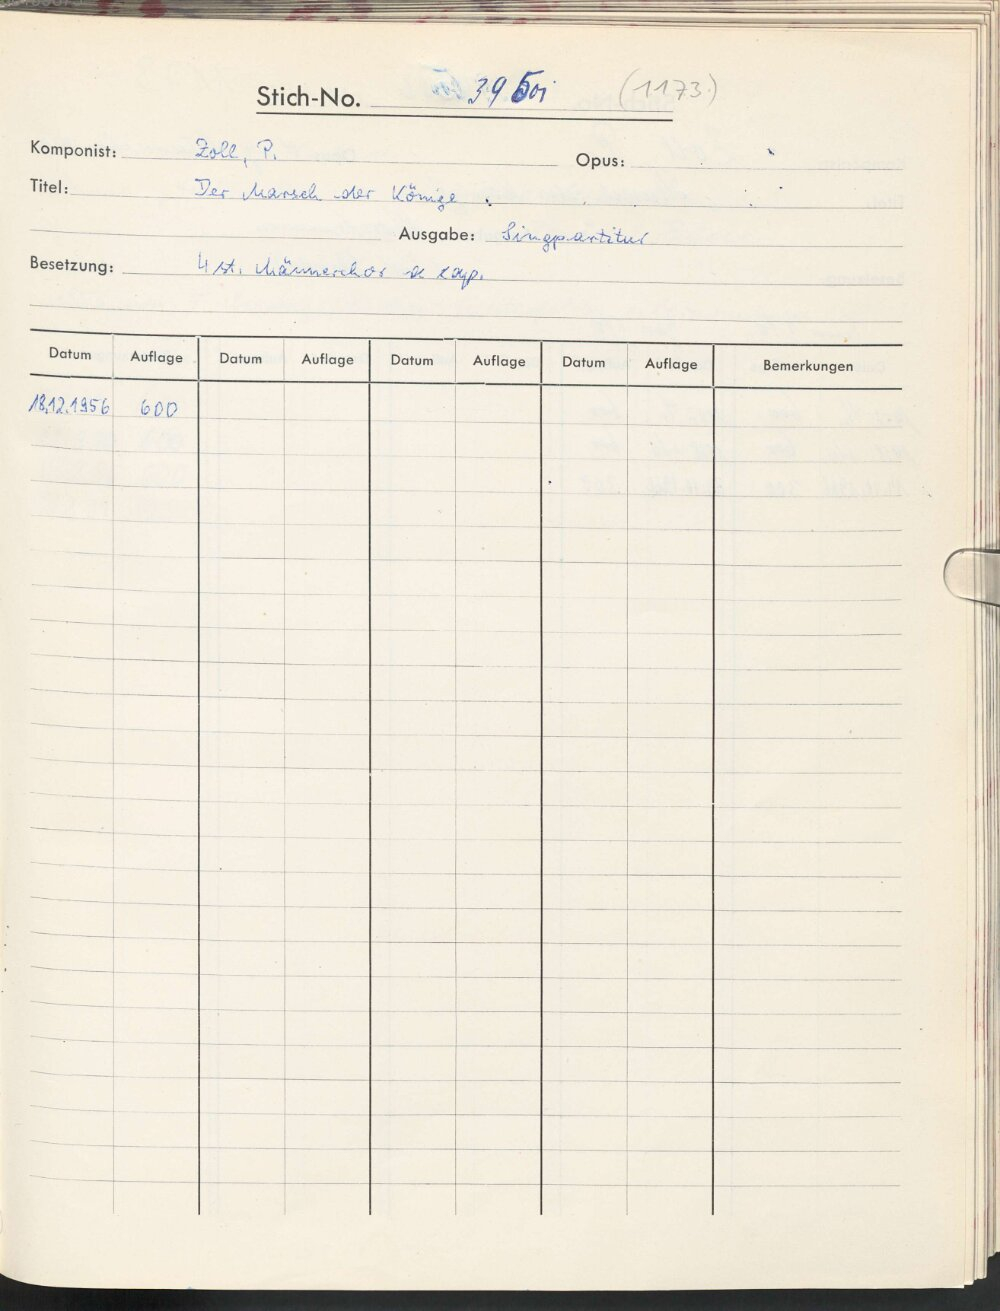 Stich-No. 39 501 (1173)
Komponist: Zoll, P. Opus:
Titel: Der Marsch der Könige
Ausgabe: Singpartitur
Besetzung: 4 st. Männerchor a capp.
Datum Auflage Datum Auflage Datum Auflage Datum Auflage Bemerkungen
18.12.1956 600